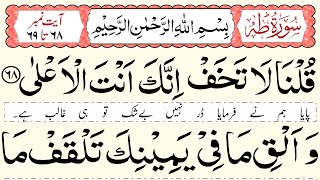 سُورَةُ طٰهٰ
بِسْمِ اللّٰهِ الرَّحْمٰنِ الرَّحِيْمِ
آیت نمبر ۶۸ تا ۶۹
قُلْنَا لَا تَخَفْ اِنَّكَ اَنْتَ الْاَعْلٰى ۶۸
پایا ہم نے فرمایا ڈر نہیں بےشک تو ہی غالب ہے۔
وَ اَلْقِ مَا فِیْ یَمِیْنِكَ تَلْقَفْ مَا